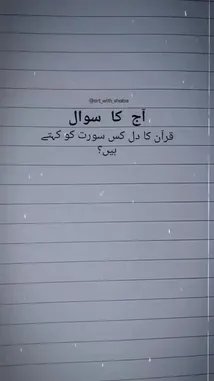 @art_with_shaba
آج کا سوال
قرآن کا دل کس سورت کو کہتے
ہیں؟